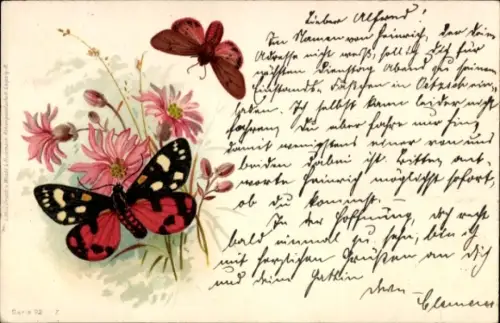 Lieber Alfred!
Im Namen von Heinrich, der Deine
Adresse nicht weiß, soll ich Dich für
nächsten Dienstag Abend zu seinem
ein-
laden. Ich selbst kann leider nicht
fahren, Du aber fahre nur hin,
damit wenigstens einer von uns
beiden dabei ist. Bitte ant-
worte Heinrich möglichst sofort,
ob Du kommst.
In der Hoffnung, dich recht
bald einmal zu sehn, bin ich
mit herzlichen Grüßen an dich
und deine Gattin
dein Clemens
Serie 12